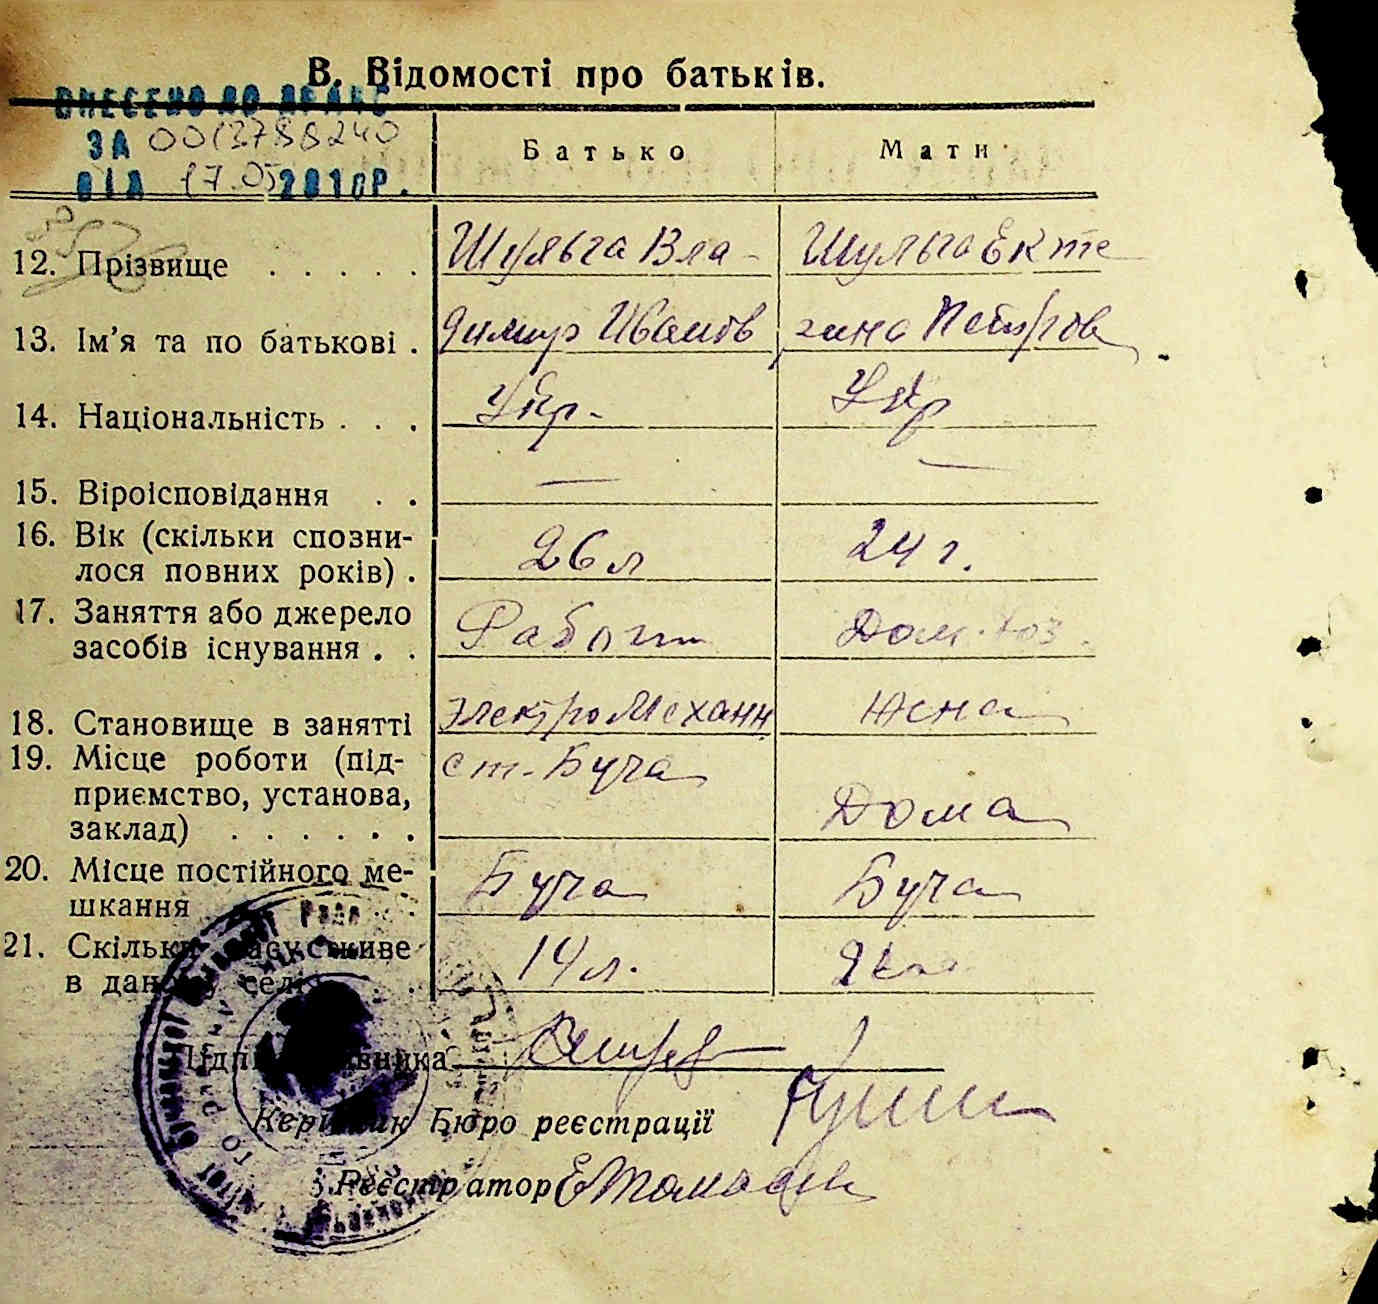 В. Відомості про батьків.
ВНЕСЕНО ДО ДРАЦС
ЗА 0013788240
ВІД 17.05 2010р.
Батько Мати
12. Прізвище . . . . . Шульга Вла- Шульга Екте
13. Ім'я та по батькові . димир Иванов рина Петров
14. Національність . . . Укр. Укр
15. Віроісповідання . . — —
16. Вік (скільки спозни-
лося повних років) . 26 л 24 г.
17. Заняття або джерело
засобів існування . . Работ Дом. хоз.
18. Становище в занятті Электромехани Жена
19. Місце роботи (під- ст. Буча
приємство, установа,
заклад) . . . . . . Дома
20. Місце постійного ме-
шкання Буча Буча
21. Скільки часу живе
в даному селі 14 л.
Підпис заявника
Керівник Бюро реєстрації
Реєстратор